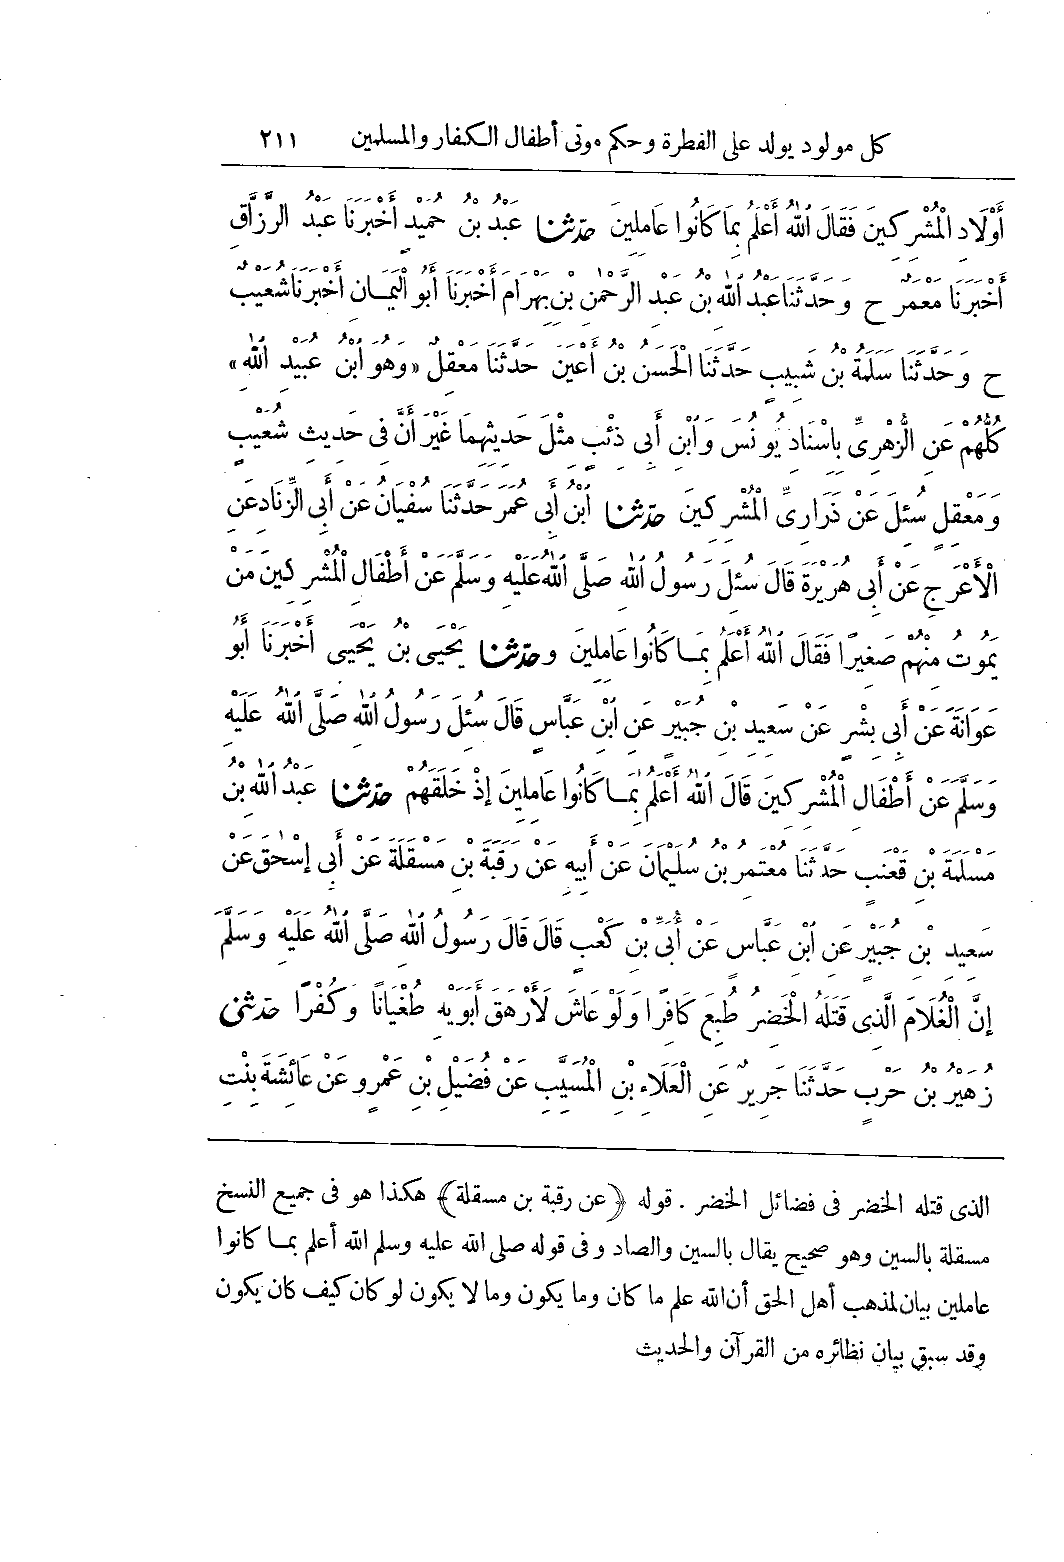 كل مولود يولد على الفطرة وحكم موتى أطفال الكفار والمسلمين ٢١١
أَوْلَادِ الْمُشْرِكِينَ فَقَالَ اللهُ أَعْلَمُ بِمَا كَانُوا عَامِلِينَ حَدَّثَنَا عَبْدُ بْنُ حُمَيْدٍ أَخْبَرَنَا عَبْدُ الرَّزَّاقِ
أَخْبَرَنَا مَعْمَرٌ ح وَحَدَّثَنَا عَبْدُ اللهِ بْنُ عَبْدِ الرَّحْمٰنِ بْنِ بَهْرَامَ أَخْبَرَنَا أَبُو الْيَمَانِ أَخْبَرَنَا شُعَيْبٌ
ح وَحَدَّثَنَا سَلَمَةُ بْنُ شَبِيبٍ حَدَّثَنَا الْحَسَنُ بْنُ أَعْيَنَ حَدَّثَنَا مَعْقِلٌ «وَهُوَ ابْنُ عُبَيْدِ اللهِ»
كُلُّهُمْ عَنِ الزُّهْرِيِّ بِإِسْنَادِ يُونُسَ وَابْنِ أَبِي ذِئْبٍ مِثْلَ حَدِيثِهِمَا غَيْرَ أَنَّ فِي حَدِيثِ شُعَيْبٍ
وَمَعْقِلٍ سُئِلَ عَنْ ذَرَارِيِّ الْمُشْرِكِينَ حَدَّثَنَا ابْنُ أَبِي عُمَرَ حَدَّثَنَا سُفْيَانُ عَنْ أَبِي الزِّنَادِ عَنِ
الْأَعْرَجِ عَنْ أَبِي هُرَيْرَةَ قَالَ سُئِلَ رَسُولُ اللهِ صَلَّى اللهُ عَلَيْهِ وَسَلَّمَ عَنْ أَطْفَالِ الْمُشْرِكِينَ مَنْ
يَمُوتُ مِنْهُمْ صَغِيرًا فَقَالَ اللهُ أَعْلَمُ بِمَا كَانُوا عَامِلِينَ وحَدَّثَنَا يَحْيَى بْنُ يَحْيَى أَخْبَرَنَا أَبُو
عَوَانَةَ عَنْ أَبِي بِشْرٍ عَنْ سَعِيدِ بْنِ جُبَيْرٍ عَنِ ابْنِ عَبَّاسٍ قَالَ سُئِلَ رَسُولُ اللهِ صَلَّى اللهُ عَلَيْهِ
وَسَلَّمَ عَنْ أَطْفَالِ الْمُشْرِكِينَ قَالَ اللهُ أَعْلَمُ بِمَا كَانُوا عَامِلِينَ إِذْ خَلَقَهُمْ حَدَّثَنَا عَبْدُ اللهِ بْنُ
مَسْلَمَةَ بْنِ قَعْنَبٍ حَدَّثَنَا مُعْتَمِرُ بْنُ سُلَيْمَانَ عَنْ أَبِيهِ عَنْ رَقَبَةَ بْنِ مَسْقَلَةَ عَنْ أَبِي إِسْحٰقَ عَنْ
سَعِيدِ بْنِ جُبَيْرٍ عَنِ ابْنِ عَبَّاسٍ عَنْ أُبَيِّ بْنِ كَعْبٍ قَالَ قَالَ رَسُولُ اللهِ صَلَّى اللهُ عَلَيْهِ وَسَلَّمَ
إِنَّ الْغُلَامَ الَّذِي قَتَلَهُ الْخَضِرُ طُبِعَ كَافِرًا وَلَوْ عَاشَ لَأَرْهَقَ أَبَوَيْهِ طُغْيَانًا وَكُفْرًا حَدَّثَنِي
زُهَيْرُ بْنُ حَرْبٍ حَدَّثَنَا جَرِيرٌ عَنِ الْعَلَاءِ بْنِ الْمُسَيَّبِ عَنْ فُضَيْلِ بْنِ عَمْرٍو عَنْ عَائِشَةَ بِنْتِ
الذى قتله الخضر فى فضائل الخضر . قوله ﴿عن رقبة بن مسقلة﴾ هكذا هو فى جميع النسخ
مسقلة بالسين وهو صحيح يقال بالسين والصاد وفى قوله صلى الله عليه وسلم الله أعلم بما كانوا
عاملين بيان لمذهب أهل الحق أن الله علم ما كان وما يكون وما لا يكون لو كان كيف كان يكون
وقد سبق بيان نظائره من القرآن والحديث